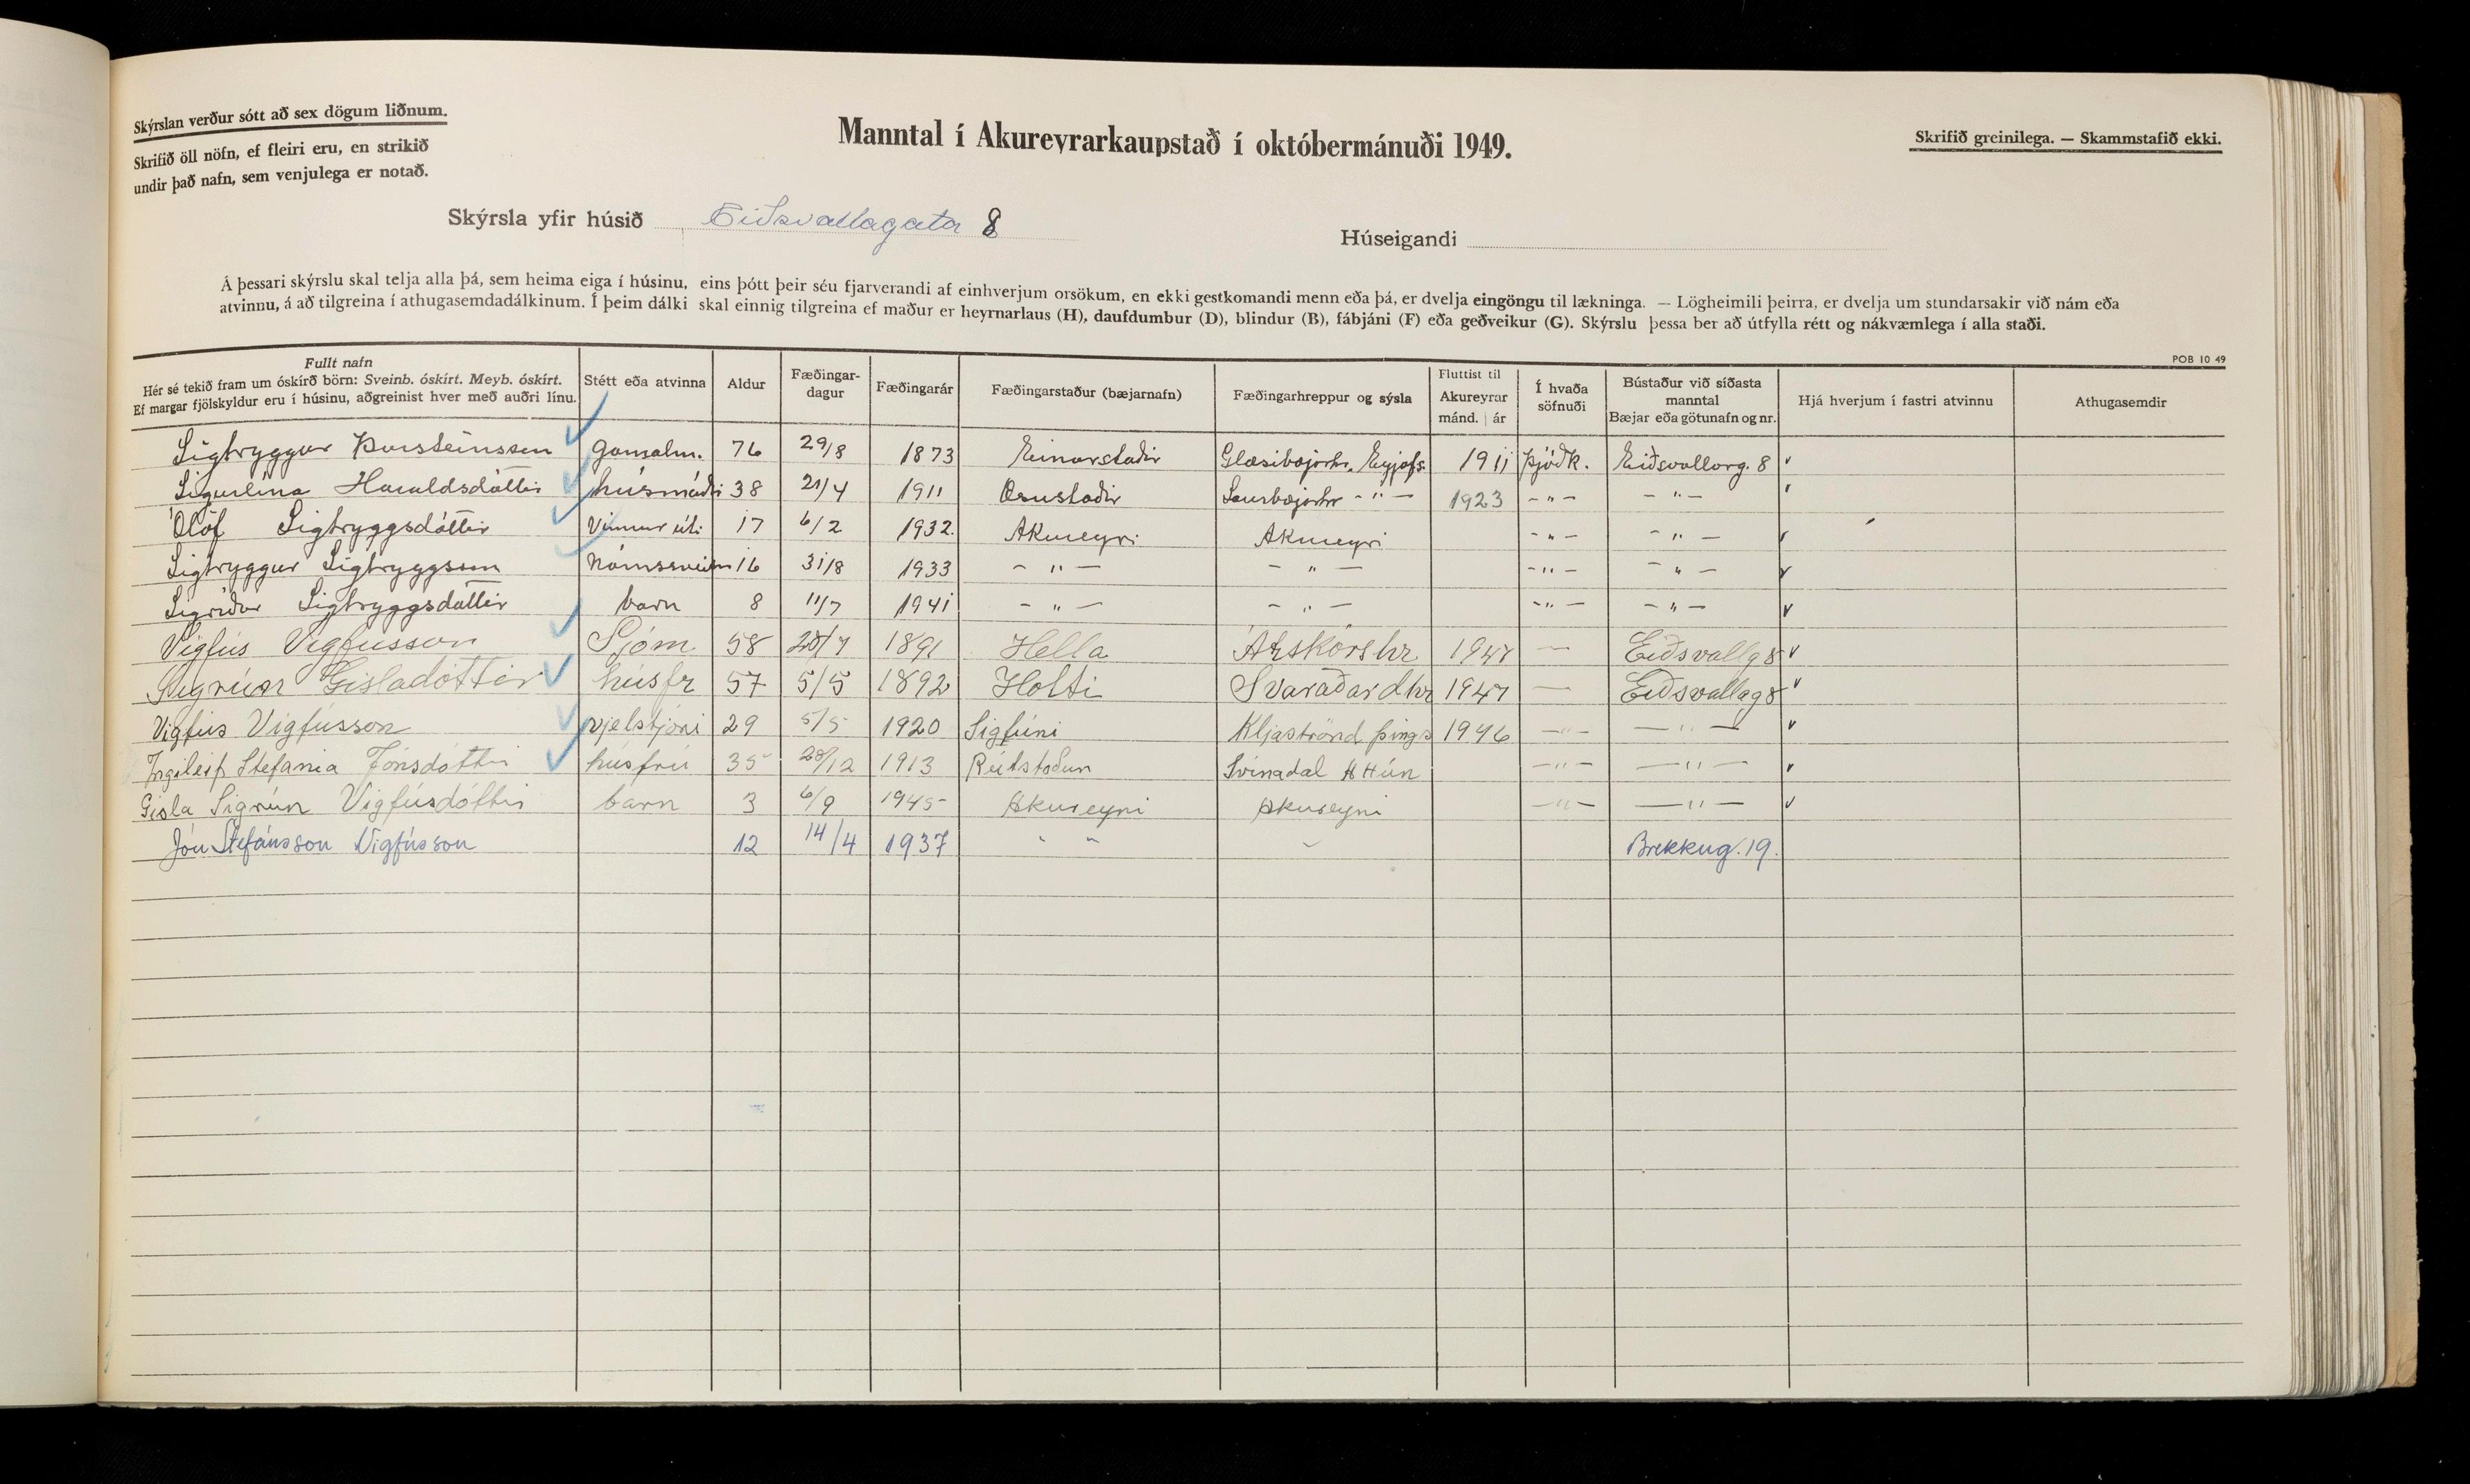 Skýrslan verður sótt að sex dögum liðnum.
Skrifið öll nöfn, ef fleiri eru, en strikið
undir það nafn, sem venjulega er notað.
Manntal í Akureyrarkaupstað í októbermánuði 1949.
Skrifið greinilega. — Skammstafið ekki.
Skýrsla yfir húsið Eiðsvallagata 8
Húseigandi
Á þessari skýrslu skal telja alla þá, sem heima eiga í húsinu, eins þótt þeir séu fjarverandi af einhverjum orsökum, en ekki gestkomandi menn eða þá, er dvelja eingöngu til lækninga. — Lögheimili þeirra, er dvelja um stundarsakir við nám eða
atvinnu, á að tilgreina í athugasemdadálkinum. Í þeim dálki skal einnig tilgreina ef maður er heyrnarlaus (H), daufdumbur (D), blindur (B), fábjáni (F) eða geðveikur (G). Skýrslu þessa ber að útfylla rétt og nákvæmlega í alla staði.
POB 10 49
Fullt nafn
Hér sé tekið fram um óskírð börn: Sveinb. óskírt. Meyb. óskírt.
Ef margar fjölskyldur eru í húsinu, aðgreinist hver með auðri línu.
Stétt eða atvinna
Aldur
Fæðingar-
dagur
Fæðingarár
Fæðingarstaður (bæjarnafn)
Fæðingarhreppur og sýsla
Fluttist til
Akureyrar
mánd. | ár
Í hvaða
söfnuði
Bústaður við síðasta
manntal
Bæjar eða götunafn og nr.
Hjá hverjum í fastri atvinnu
Athugasemdir
Sigtryggur Þorsteinsson Gamalm. 76 29/8 1873 Einarstaðir Glæsibæjarhr. Eyjafs. 1911 Þjóðk. Eiðsvallag. 8
Sigurlína Haraldsdóttir húsmóðir 38 21/4 1911 Saurbæjarhr - " - 1923 - " - - " -
Ólöf Sigtryggsdóttir Vinnur úti 17 6/2 1932. Akureyri Akureyri - " - - " -
Sigtryggur Sigtryggsson Námssveinn 16 31/8 1933 - " - - " - - " - - " -
Sigríður Sigtryggsdóttir barn 8 11/7 1941 - " - - " - - " - - " -
Vigfús Vigfússon Sjóm 58 28/7 1891 Hella Árskórshr 1947 — Eiðsvallg 8
Sigrún Gísladóttir húsfr 57 5/5 1892 Holti Svaraðardhr 1947 — Eiðsvallag 8
Vigfús Vigfússon vjelstjóri 29 5/5 1920 Sigfúni Kljáströnd Þings 1946 - " - - " -
Ingileif Stefania Jónsdóttir húsfrú 35 28/12 1913 Rútstoðun Svínadal A Hún - " - - " -
Gisla Sigrún Vigfúsdóttir barn 3 6/9 1945 Akureyri Akureyri - " - - " -
Jón Stefánsson Vigfússon 12 14/4 1937 " " " Brekkug. 19.